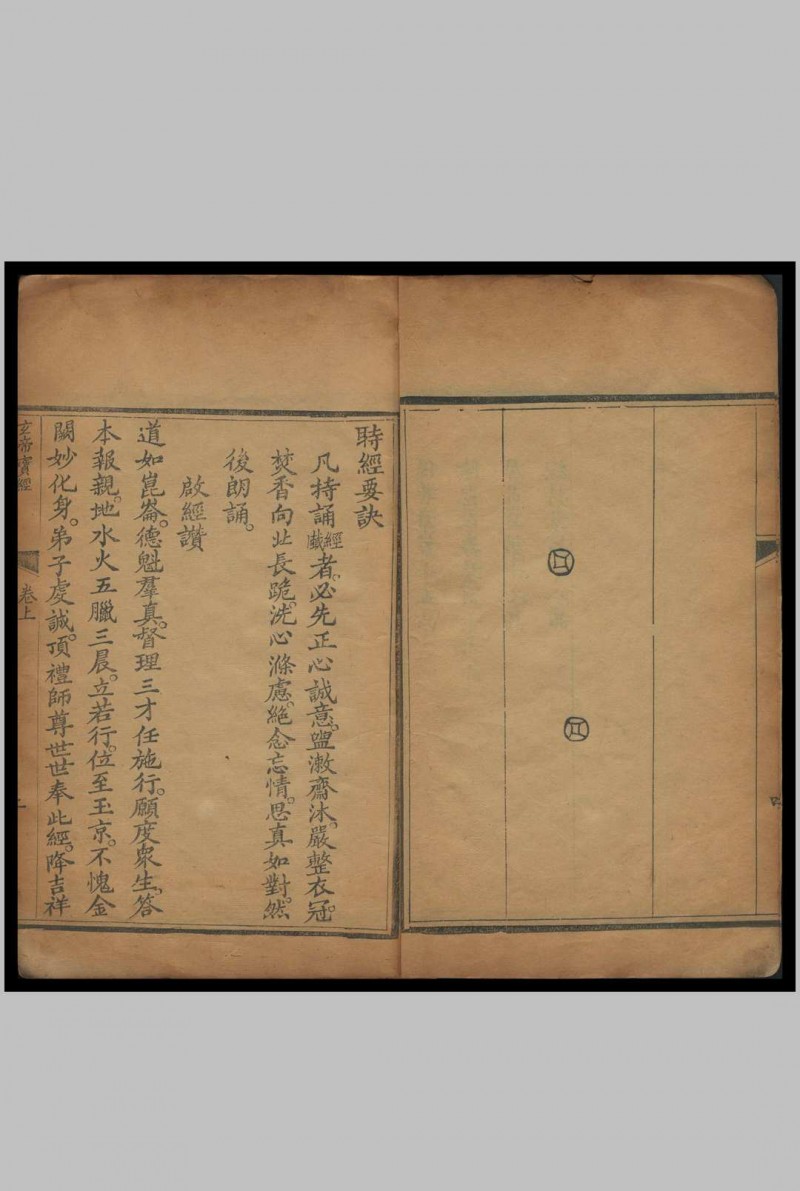 時經要訣
凡持誦經懴者。必先正心誠意。盥漱齋沐。嚴整衣冠。
焚香向北長跪。洗心滌慮。絕念忘情。思真如對。然
後朗誦。
啟經讚
道如崑崙。德魁羣真。督理三才任施行。願度衆生。答
本報親。地水火五臘三晨。立若行。位至玉京。不愧金
闕妙化身。弟子虔誠。頂禮師尊世世奉此經。降吉祥
玄帝寳經
卷上